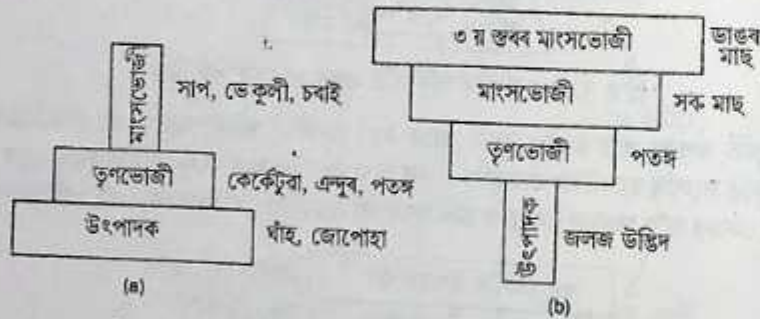 মাংসভোজী
সাপ, ভেকুলী, চৰাই
তৃণভোজী
কেৰ্কেটুৱা, এন্দুৰ, পতঙ্গ
উৎপাদক
ঘাঁহ, জোপোহা
(a)
৩ য় স্তৰৰ মাংসভোজী
ডাঙৰ
মাছ
মাংসভোজী
সৰু মাছ
তৃণভোজী
পতঙ্গ
উৎপাদক
জলজ উদ্ভিদ
(b)